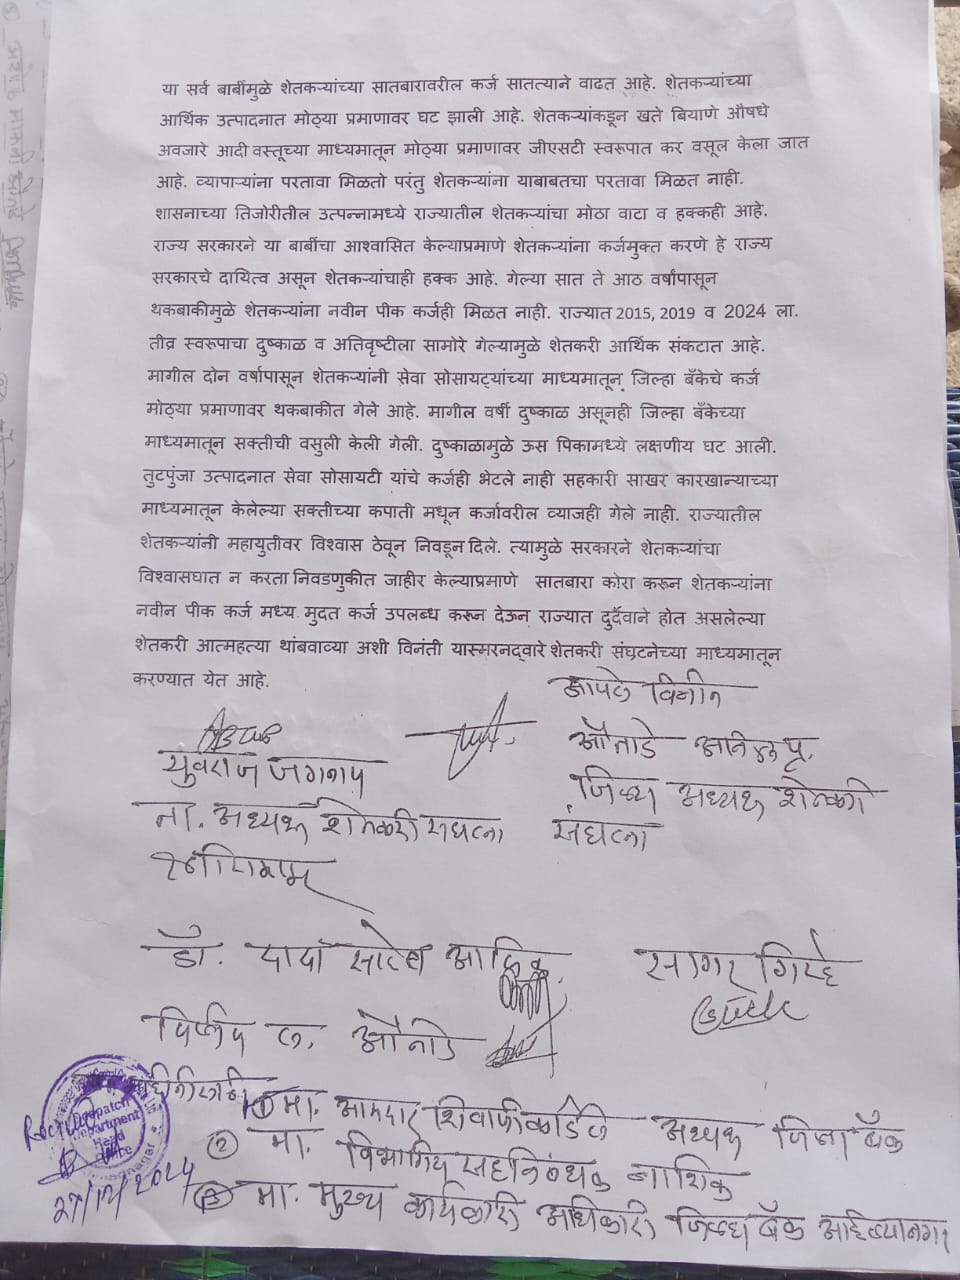 या सर्व बाबींमुळे शेतकऱ्यांच्या सातबारावरील कर्ज सातत्याने वाढत आहे. शेतकऱ्यांच्या
आर्थिक उत्पादनात मोठ्या प्रमाणावर घट झाली आहे. शेतकऱ्यांकडून खते बियाणे औषधे
अवजारे आदी वस्तूच्या माध्यमातून मोठ्या प्रमाणावर जीएसटी स्वरूपात कर वसूल केला जात
आहे. व्यापाऱ्यांना परतावा मिळतो परंतु शेतकऱ्यांना याबाबतचा परतावा मिळत नाही.
शासनाच्या तिजोरीतील उत्पन्नामध्ये राज्यातील शेतकऱ्यांचा मोठा वाटा व हक्कही आहे.
राज्य सरकारने या बाबींचा आश्वासित केल्याप्रमाणे शेतकऱ्यांना कर्जमुक्त करणे हे राज्य
सरकारचे दायित्व असून शेतकऱ्यांचाही हक्क आहे. गेल्या सात ते आठ वर्षांपासून
थकबाकीमुळे शेतकऱ्यांना नवीन पीक कर्जही मिळत नाही. राज्यात 2015, 2019 व 2024 ला.
तीव्र स्वरूपाचा दुष्काळ व अतिवृष्टीला सामोरे गेल्यामुळे शेतकरी आर्थिक संकटात आहे.
मागील दोन वर्षापासून शेतकऱ्यांनी सेवा सोसायट्यांच्या माध्यमातून जिल्हा बँकेचे कर्ज
मोठ्या प्रमाणावर थकबाकीत गेले आहे. मागील वर्षी दुष्काळ असूनही जिल्हा बँकेच्या
माध्यमातून सक्तीची वसुली केली गेली. दुष्काळामुळे ऊस पिकामध्ये लक्षणीय घट आली.
तुटपुंजा उत्पादनात सेवा सोसायटी यांचे कर्जही भेटले नाही सहकारी साखर कारखान्याच्या
माध्यमातून केलेल्या सक्तीच्या कपाती मधून कर्जावरील व्याजही गेले नाही. राज्यातील
शेतकऱ्यांनी महायुतीवर विश्वास ठेवून निवडून दिले. त्यामुळे सरकारने शेतकऱ्यांचा
विश्वासघात न करता निवडणुकीत जाहीर केल्याप्रमाणे सातबारा कोरा करून शेतकऱ्यांना
नवीन पीक कर्ज मध्य मुदत कर्ज उपलब्ध करून देऊन राज्यात दुर्दैवाने होत असलेल्या
शेतकरी आत्महत्या थांबवाव्या अशी विनंती यास्मरनद्वारे शेतकरी संघटनेच्या माध्यमातून
करण्यात येत आहे.
आपले विनीत
युवराज जगताप
औताडे
जिल्हा अध्यक्ष शेतकरी
संघटना
ता. अध्यक्ष शेतकरी संघटना
डॉ. दादा साहेब आदिक
सागर गिऱ्हे
औताडे
Despatch
Department
Head
Office
Received
27/12/2024
① मा. आमदार शिवाजी कर्डिले अध्यक्ष जिल्हा बँक
② मा. विभागीय सहनिबंधक नाशिक
③ मा. मुख्य कार्यकारी अधिकारी जिल्हा बँक अहिल्यानगर